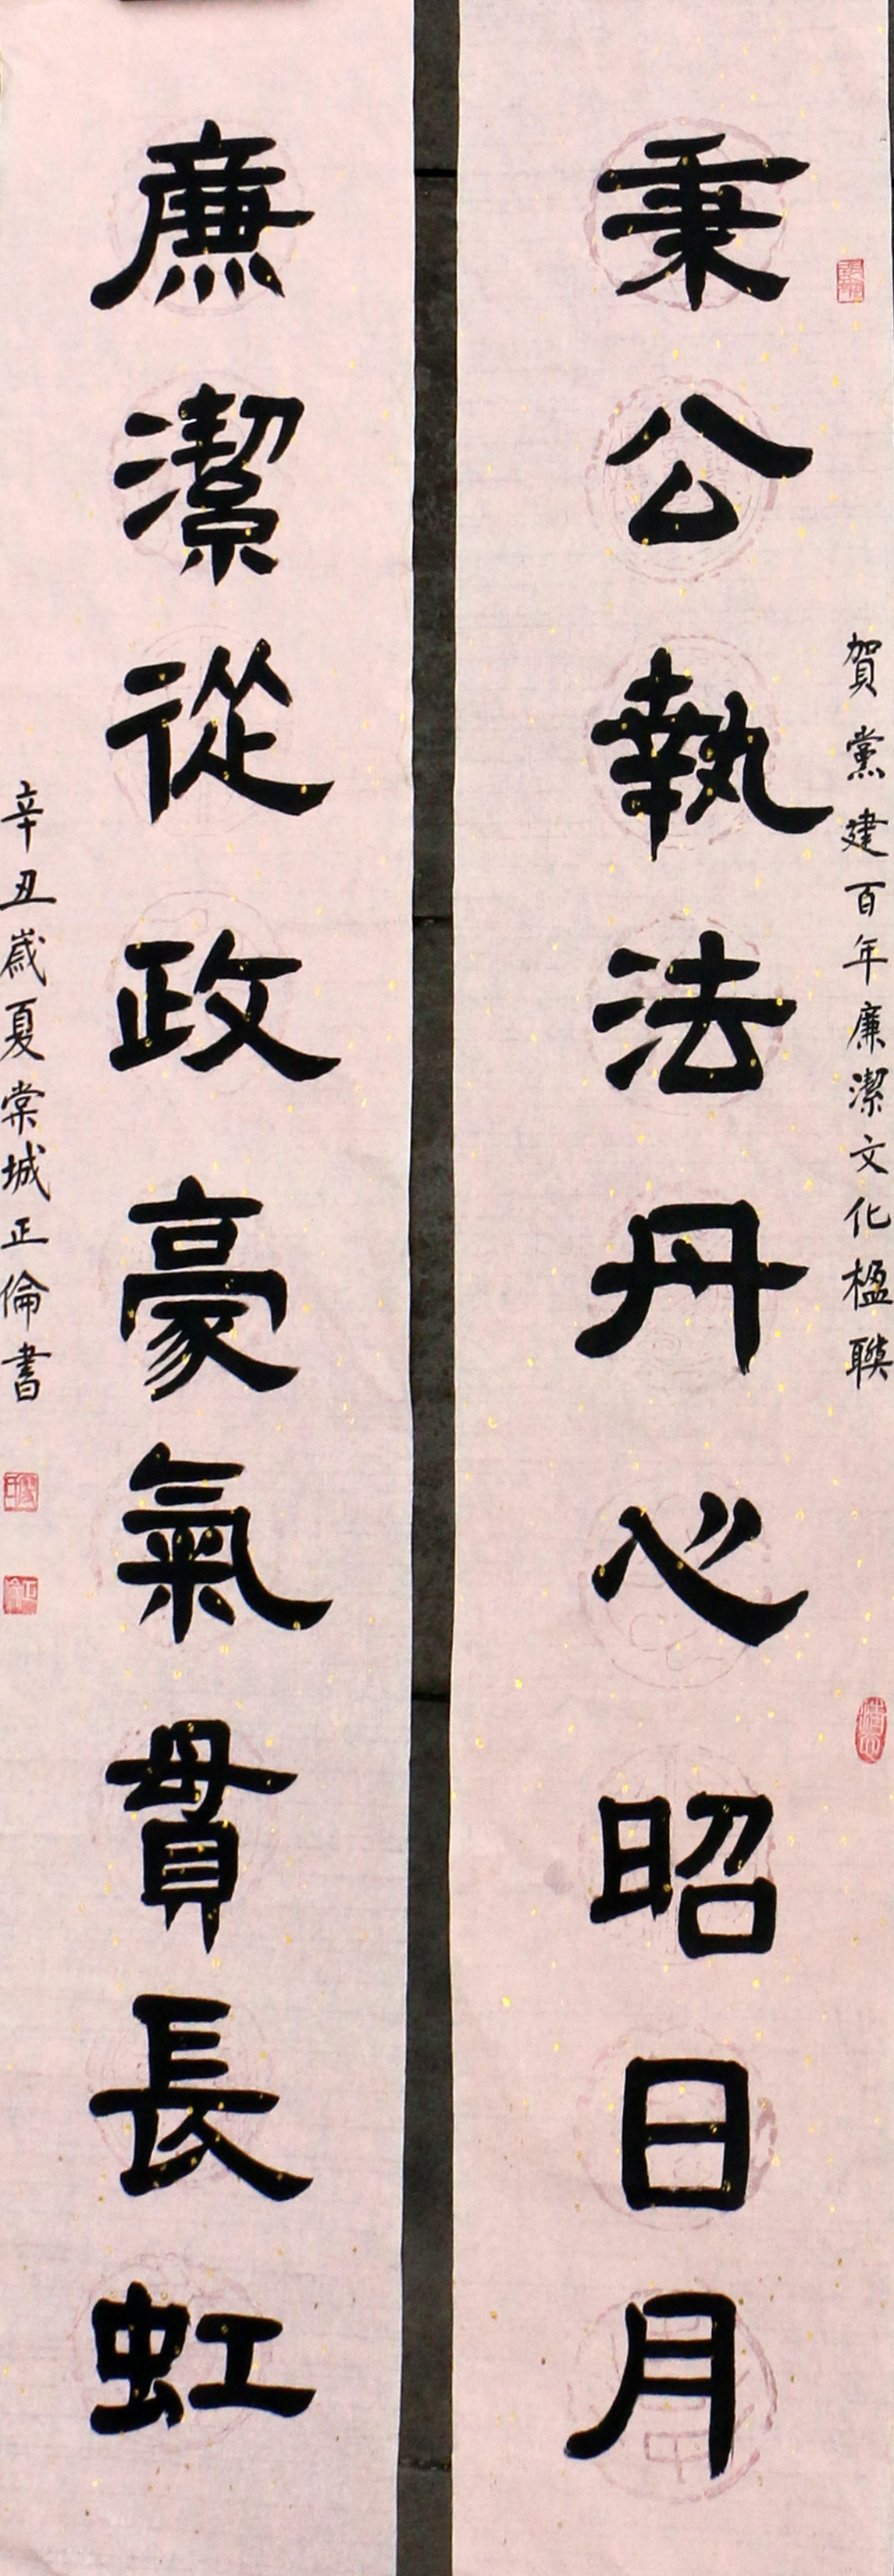 賀黨建百年廉潔文化楹聯
秉公執法丹心昭日月
廉潔從政豪氣貫長虹
辛丑歲夏棠城正倫書